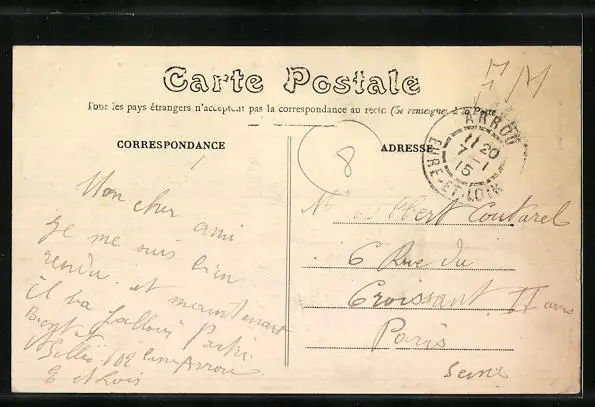 Carte Postale
Tous les pays étrangers n'acceptent pas la correspondance au recto (Se renseigner à la Poste)
CORRESPONDANCE
ADRESSE
FM
8
ARROU
11 20
7-1
15
EURE-ET-LOIR
Mon cher ami
Je me suis bien
rendu et maintenant
il va falloir Partir
102 Arrou
E et Loir
Mr Albert Coutarel
6 Rue du
Croissant II arr
Paris
Seine